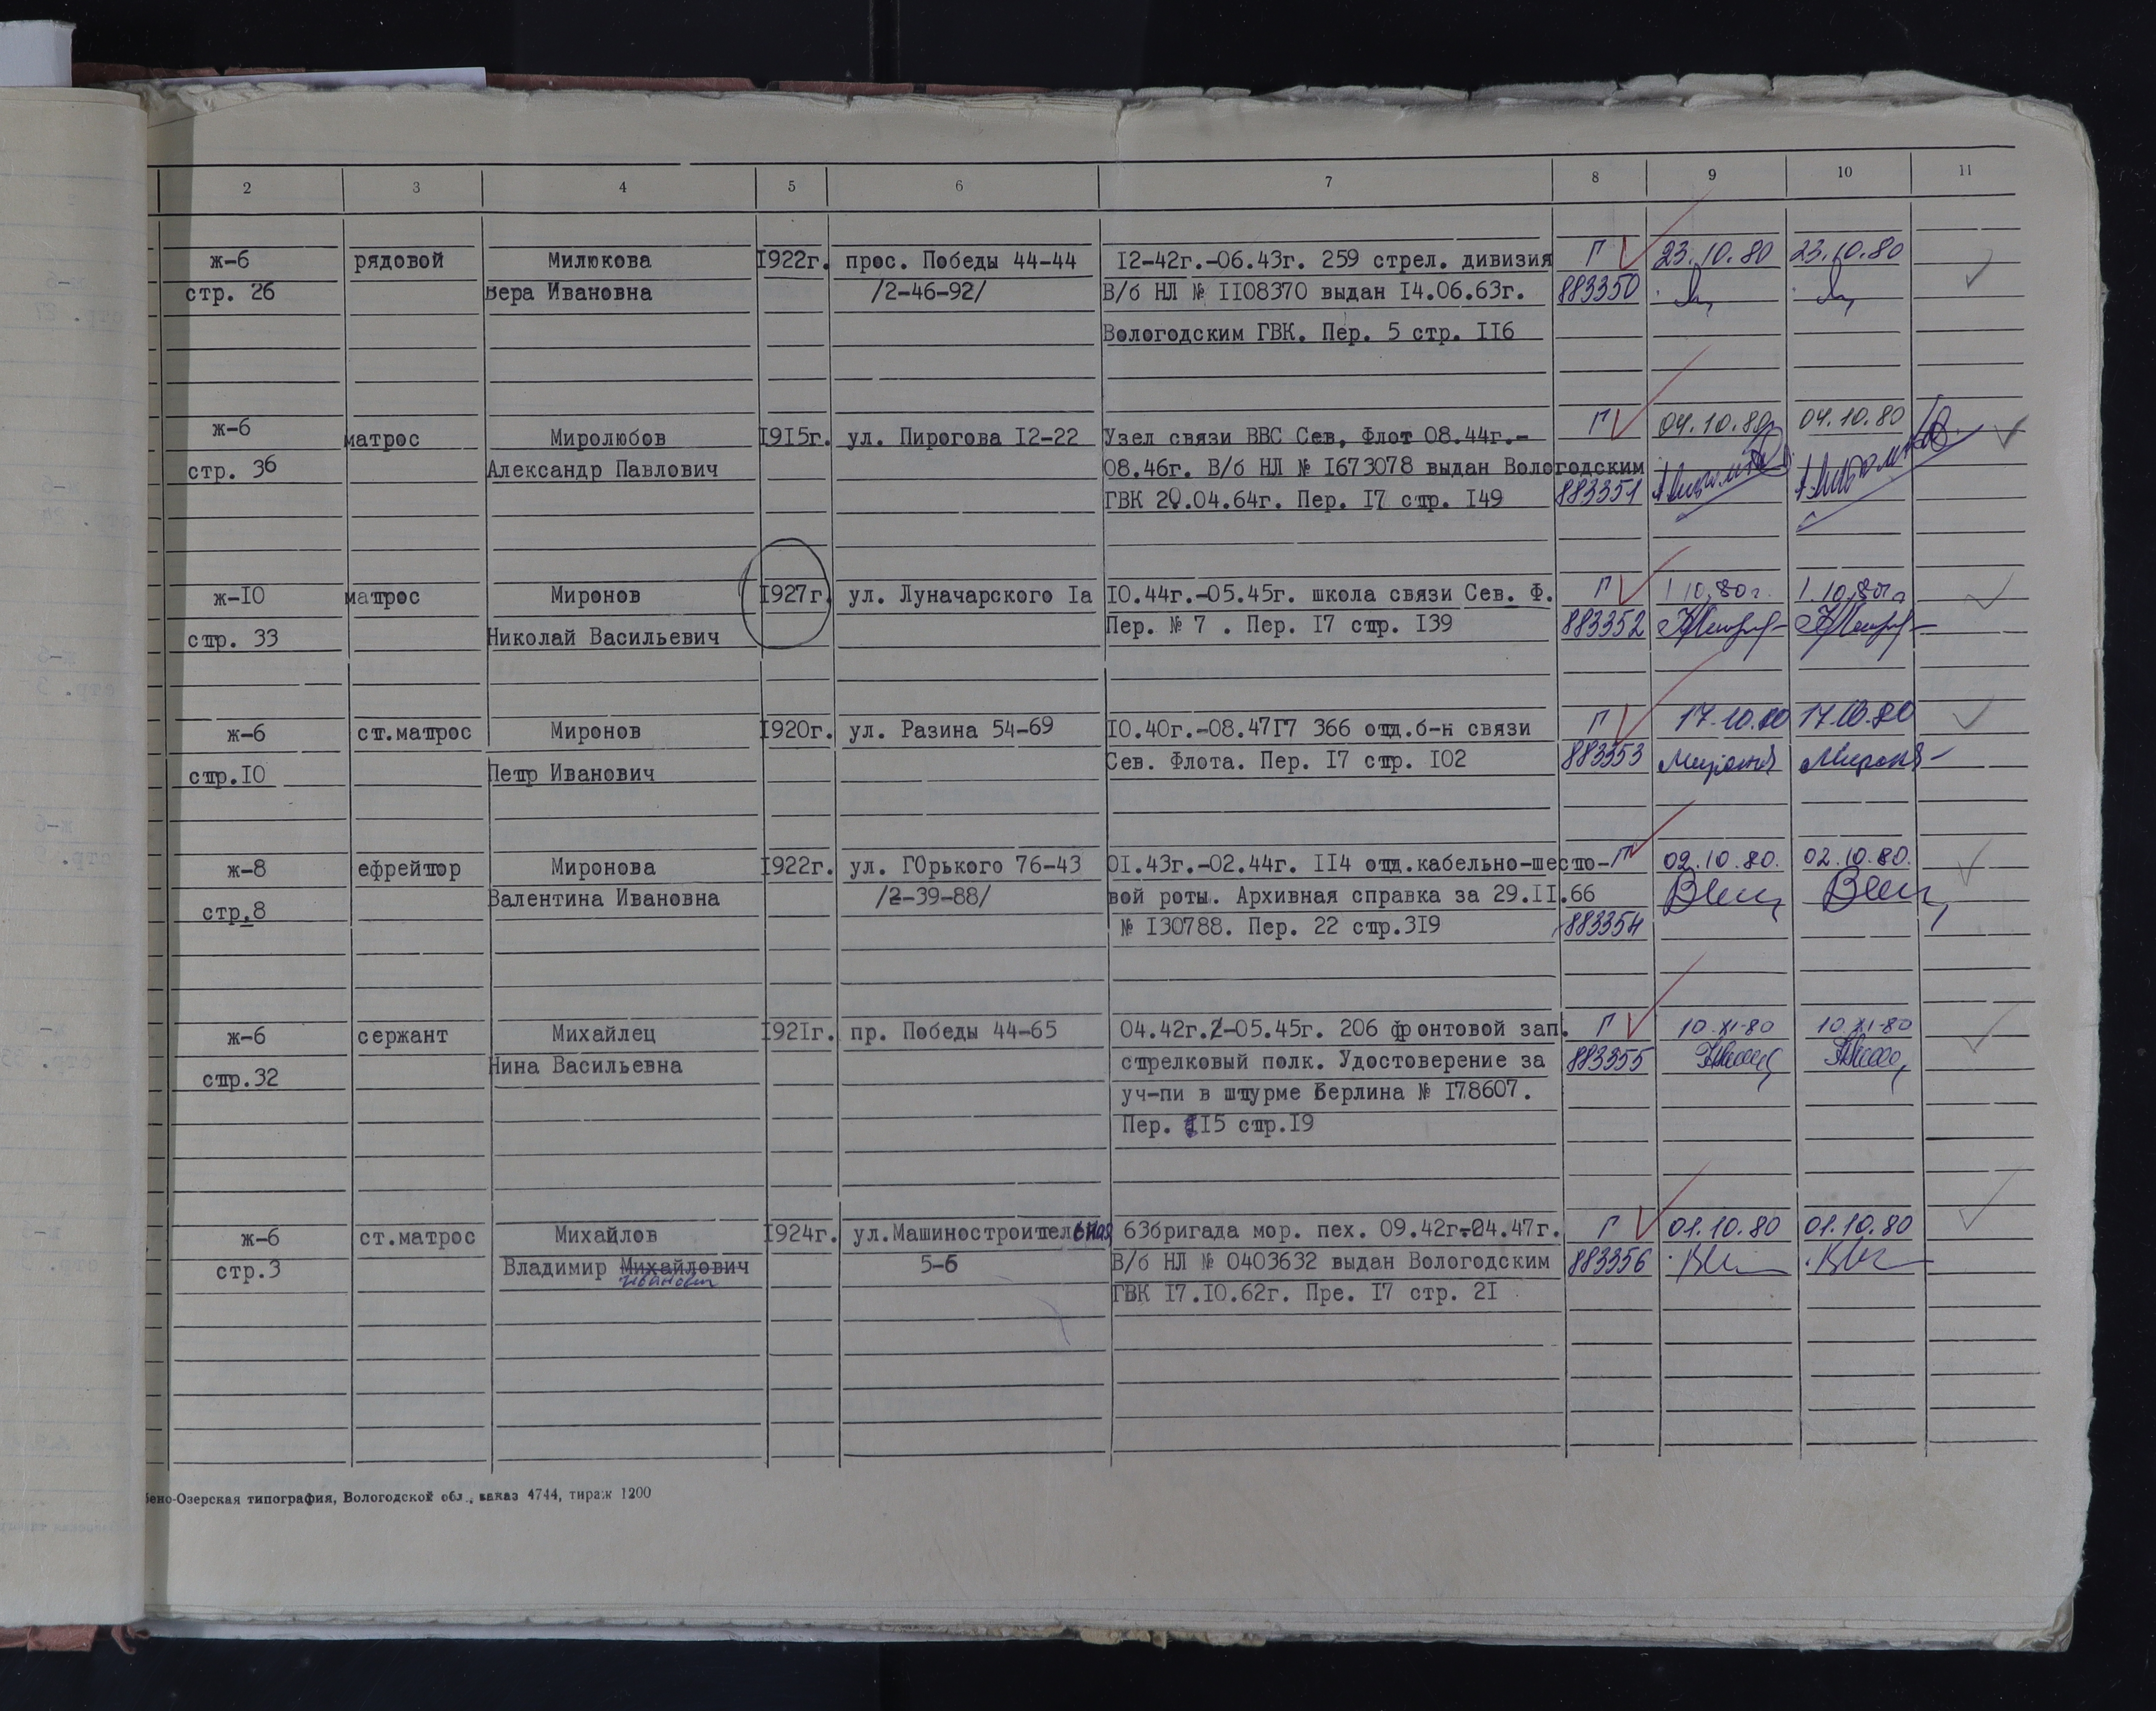 2 3 4 5 6 7 8 9 10 11
ж-6 рядовой Милюкова 1922г. прос. Победы 44-44 12-42г.-06.43г. 259 стрел. дивизия Г 23.10.80 23.10.80
стр. 26 Вера Ивановна /2-46-92/ В/б НЛ № 1108370 выдан 14.06.63г. 883350
Вологодским ГВК. Пер. 5 стр. 116
ж-6 матрос Миролюбов 1915г. ул. Пирогова 12-22 Узел связи ВВС Сев, Флот 08.44г.- Г 04.10.80 04.10.80
стр. 36 Александр Павлович 08.46г. В/б НЛ № 1673078 выдан Вологодским
ГВК 20.04.64г. Пер. 17 стр. 149 883351
ж-10 матрос Миронов 1927г. ул. Луначарского 1а 10.44г.-05.45г. школа связи Сев. Ф. Г 1.10.80г. 1.10.80г
стр. 33 Николай Васильевич Пер. № 7 . Пер. 17 стр. 139 883352
ж-6 ст.матрос Миронов 1920г. ул. Разина 54-69 10.40г.-08.47Г7 366 отд.б-н связи Г 17.10.80 17.10.80
стр.10 Петр Иванович Сев. Флота. Пер. 17 стр. 102 883353
ж-8 ефрейтор Миронова 1922г. ул. ГОрького 76-43 01.43г.-02.44г. 114 отд.кабельно-шесто- Г 02.10.80. 02.10.80.
стр.8 Валентина Ивановна /2-39-88/ вой роты. Архивная справка за 29.11.66
№ 130788. Пер. 22 стр.319 883354
ж-6 сержант Михайлец 1921г. пр. Победы 44-65 04.42г.-05.45г. 206 фронтовой зап. Г 10.XI-80 10.XI-80
стр.32 Нина Васильевна стрелковый полк. Удостоверение за 883355
уч-пи в штурме Берлина № 178607.
Пер. 115 стр.19
ж-6 ст.матрос Михайлов 1924г. ул.Машиностроительная 63бригада мор. пех. 09.42г-04.47г. Г 01.10.80 01.10.80
стр.3 Владимир Михайлович 5-6 В/б НЛ № 0403632 выдан Вологодским 883356
Иванович
ГВК 17.10.62г. Пре. 17 стр. 21
бено-Озерская типография, Вологодской обл., заказ 4744, тираж 1200